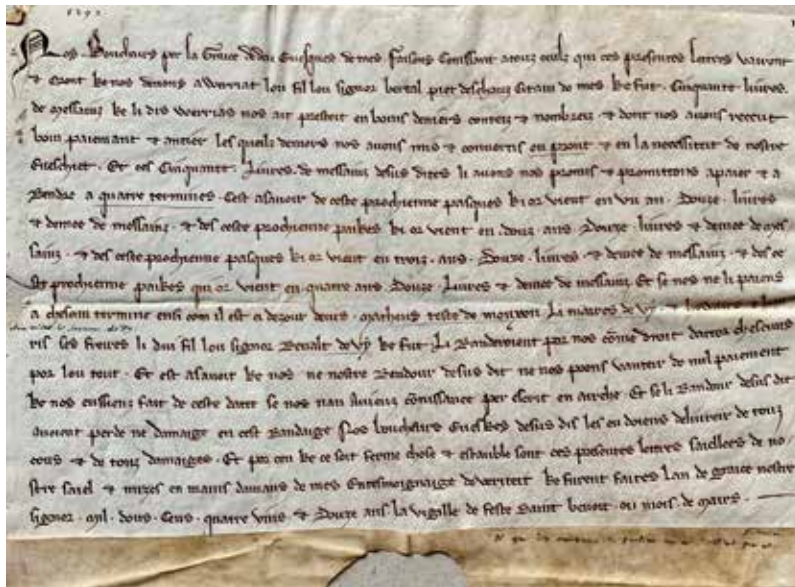 1292
Nos Bouchars per la Grace de deu Evesques de mes faisons conissant a touz ceulz qui ces presentes lettres vairont
& oront ke nos devons a werriat lou fil lou signor bertal piet deschaus Citain de mes ke fut. Cinquante livres.
de messains ke li dis werrias nos ait presteit en bouns deniers conteiz & nombreiz & dont nos avons receut
boin paiemant & antier les queils deniers nos avons mis & convertis ou prout & en la necessiteit de nostre
Eveschiet. Et ces Cinquante. Livres. de messains desus dites li avons nos promis & promettons a paier & a
Rendre a quatre termines. Cest a savoir de ceste prochienne pasques ki or vient en un an. Douze. livres
& demee de messains. & des ceste prochienne paikes ki or vient en. douz. ans. Douze. livres & demee de mes
sains. & des ceste prochienne pasques ki or vient en troiz. ans. Douze. livres. & demee de messains. & des ce
ste prochienne paikes qui or vient en quatre ans. Douze. Livres & demee de messains. Et se nos ne li paiens
a chescun termine ensi com il est a dezour deus. matheus teste de Li maires de &
ris ses freires li dui fil lou signor Renalt de ke fut. Li Randeroient por nos come droit dattor chescuns
por lou tout. Et est a savoir ke nos ne nostre Randour desus dit ne nos poons vanteir de nul paiement
ke nos eussiens fait de ceste date se nos nan aviens conissance per escrit en arche. Et se li Randour desus dit
avoient perde ne damaige en cest Randaige Nos bouchars Eveskes desus dis les en doiens delivreir de touz
cous & de touz damaiges. Et por ceu ke ce soit ferme chose & estauble sont ces presentes lettres saellees de no
stre sael & mizes en mains damans de mes En tesmoignaige de veriteit ke furent faites lan de grace nostre
signor. mil. dous. Cens. quatre vins. & Douze ans la vigille de feste saint benoit. ou mois de mars.